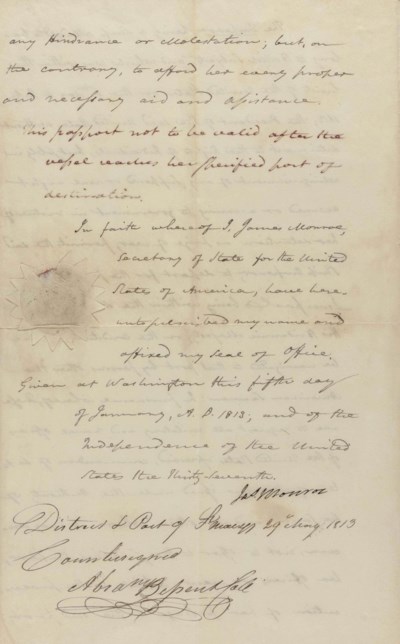 any Hindrance or Molestation; but, on
the contrary, to afford her every proper
and necessary aid and assistance.
This passport not to be valid after the
vessel reaches her specified port of
destination.
In faith whereof I, James Monroe,
Secretary of State for the United
States of America, have here-
unto subscribed my name and
affixed my seal of Office.
Given at Washington this fifth day
of January, A.D. 1813, and of the
Independence of the United
States the thirty seventh.
Jas Monroe
District & Port of St Marys 29th 1813
Countersigned
Abram Bessent Coll